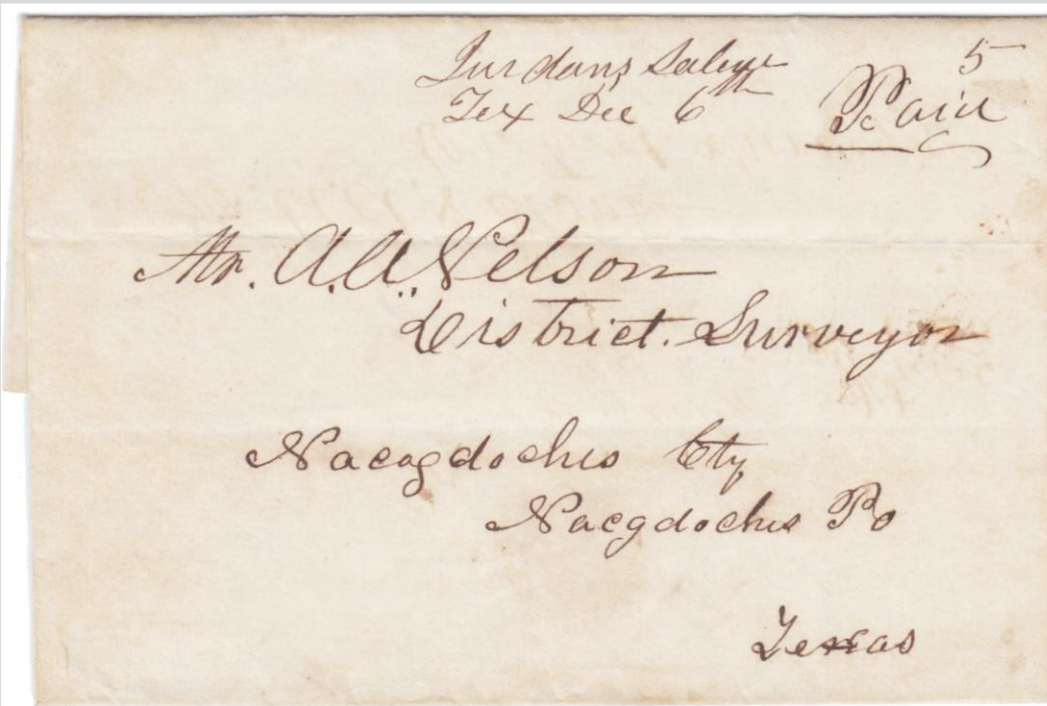 Jurdans Saline 5
Tex Dec 6th Paid
Mr. A. A. Nelson
District. Surveyor
Nacogdoches Cty
Nacgdoches Po
Texas